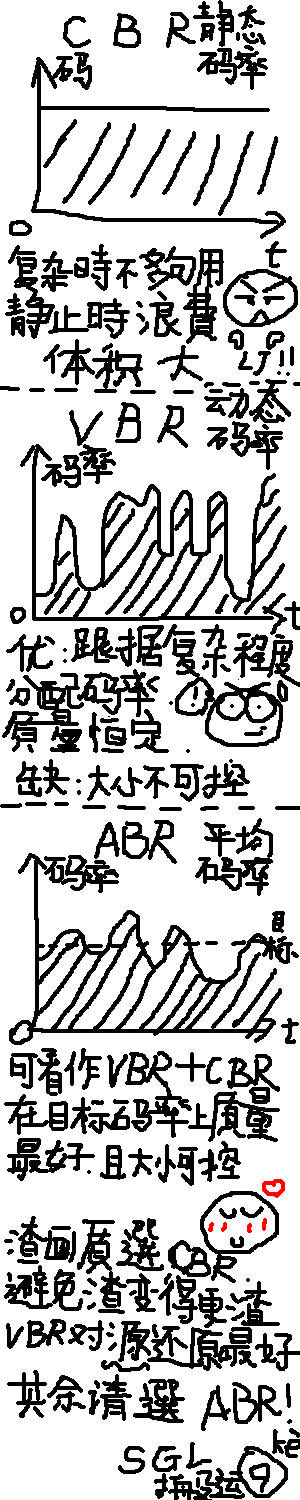 CBR静态
码率
码
0
t
复杂時不多句用
静止時浪費
体积大
LJ!!
VBR动态
码率
码率
0
t
优:跟据复杂程度
分配码率
质量恒定.
缺:大小不可控
ABR 平均
码率
码率
目标
0
t
可看作VBR+CBR
在目标码率上质量
最好.且大小可控
渣画质選CBR
避免渣变得更渣
VBR对源还原最好
其余请選ABR!
SGL
搬运
kè